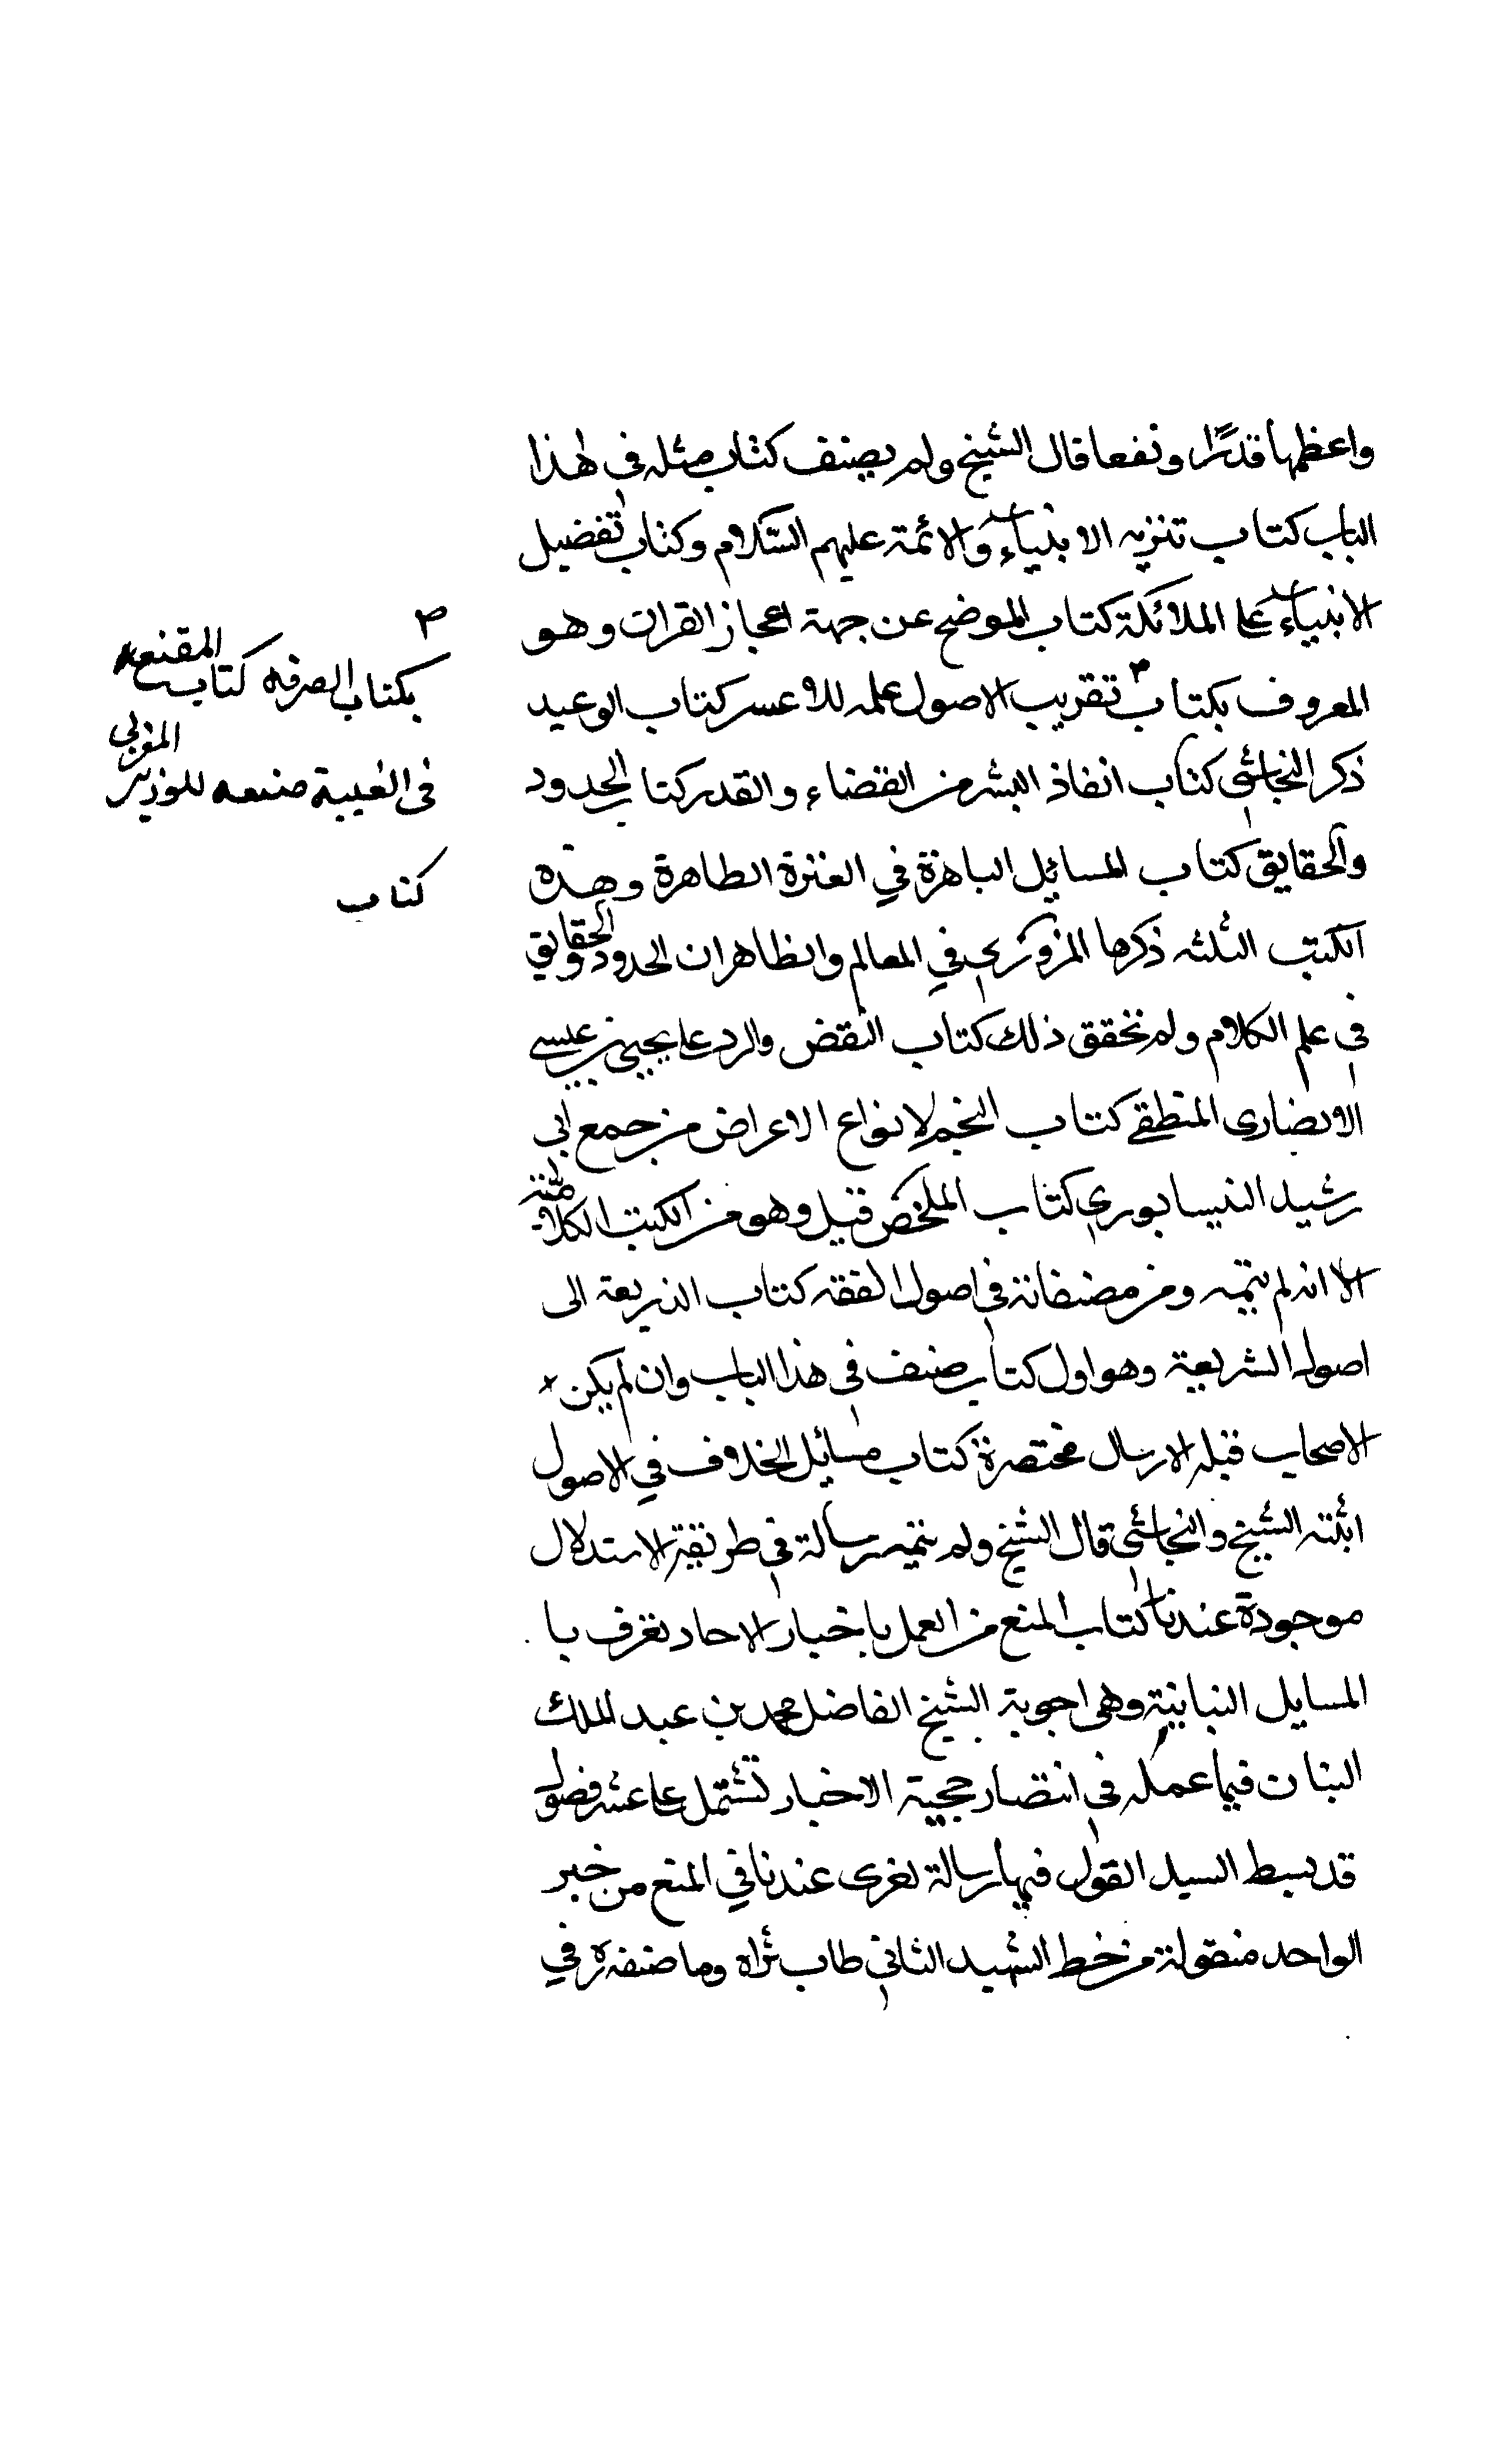 واعظمها قدرًا ونفعا قال الشيخ ولم يصنف كتاب مثله في هذا
الباب كتاب تنزيه الانبياء والائمة عليهم السّلام وكتاب تفضيل
الانبياء على الملائكة كتاب الموضح عن جهة اعجاز القران وهو
المعروف بكتاب تقريب الاصول عمله للاعسر كتاب الوعيد
ذكر النجاشي كتاب انقاذ البشر من القضاء والقدر كتاب الحدود
والحقايق كتاب المسايل الباهرة في العترة الطاهرة وهذه
الكتب الثلثه ذكرها في المعالم والظاهر ان الحدود والحقايق
في علم الكلام ولم نتحقق ذلك كتاب النقض والرد على يحيى بن عيسى
الانصارى المنطقي كتاب لانواع الاعراض من جمع ابى
رشيد النيسابوري كتاب الملخص قيل وهو من الكتب الكلامية
الا انه لم يتمه ومن مصنفاته في اصول الفقه كتاب الذريعة الى
اصول الشريعة وهو اول كتاب صنف في هذا الباب وان لم يكن
الاصحاب قبله الا رسال مختصرة كتاب مسائل الخلاف في الاصول
اثبته الشيخ والنجاشي قال الشيخ ولم يتمه رسالة في طريقة الاستدلال
موجودة عندنا كتاب المنع من العمل باخبار الاحاد تعرف با
المسايل التبانية وهى اجوبة الشيخ الفاضل محمد بن عبد الملك
التبان فيما عمله في انتصار حجية الاخبار تشتمل على عشر فصول
قد بسط السيد القول فيها رسالة اخرى عندنا في المنع من خبر
الواحد منقولة من خط الشهيد الثاني طاب ثراه وما صنفه في
بكتاب الصرفه كتاب المقنعه
في الغيبة صنعه للوزير المغربي
كتاب